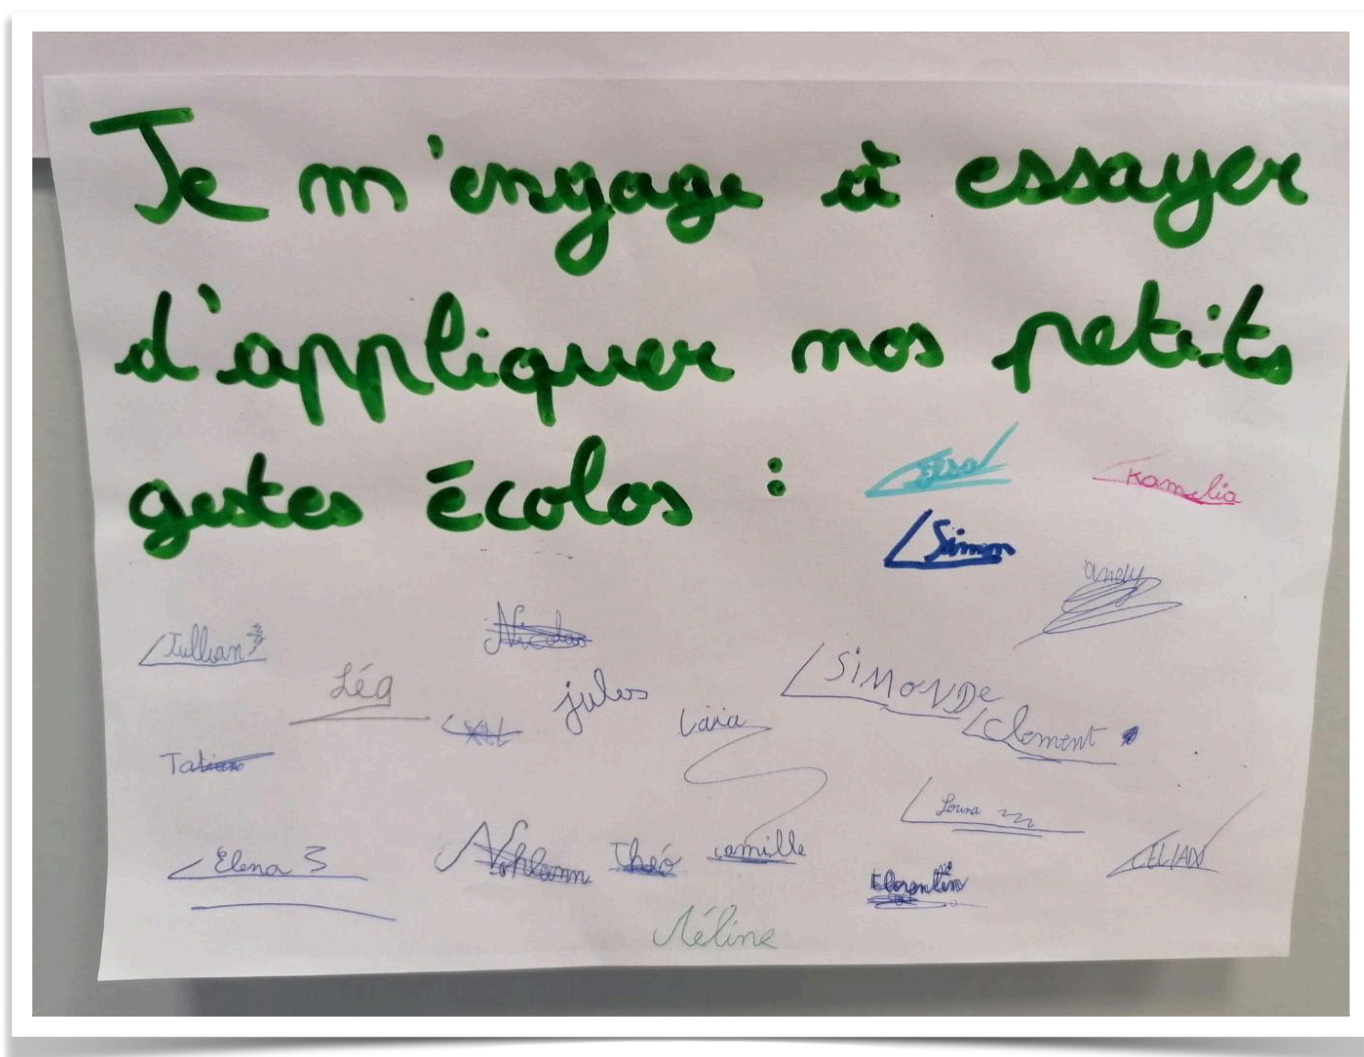 Je m'engage à essayer
d'appliquer nos petits
gestes écolos :
Kamelia
Simon
andy
Jullian
Nicolas
Léa
jules
SIMONDE
Clement
Tatiana
Louna
Elena
Nohlann
Théo
camille
CELIAN
Florentin
Méline